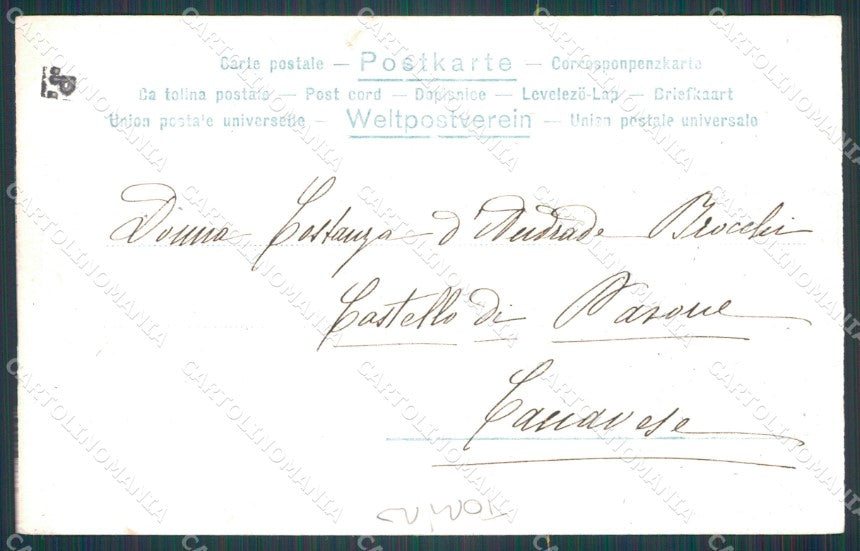 Carte postale — Postkarte — Corresponpenzkarte
Ca tolina postale — Post cord — Dopisnice — Levelezö-Lap — Briefkaart
Union postale universelle — Weltpostverein — Union postale universale
Donna Costanza d'Andrade Brocchi
Castello di Pavone
Canavese
CARTOLINOMANIA